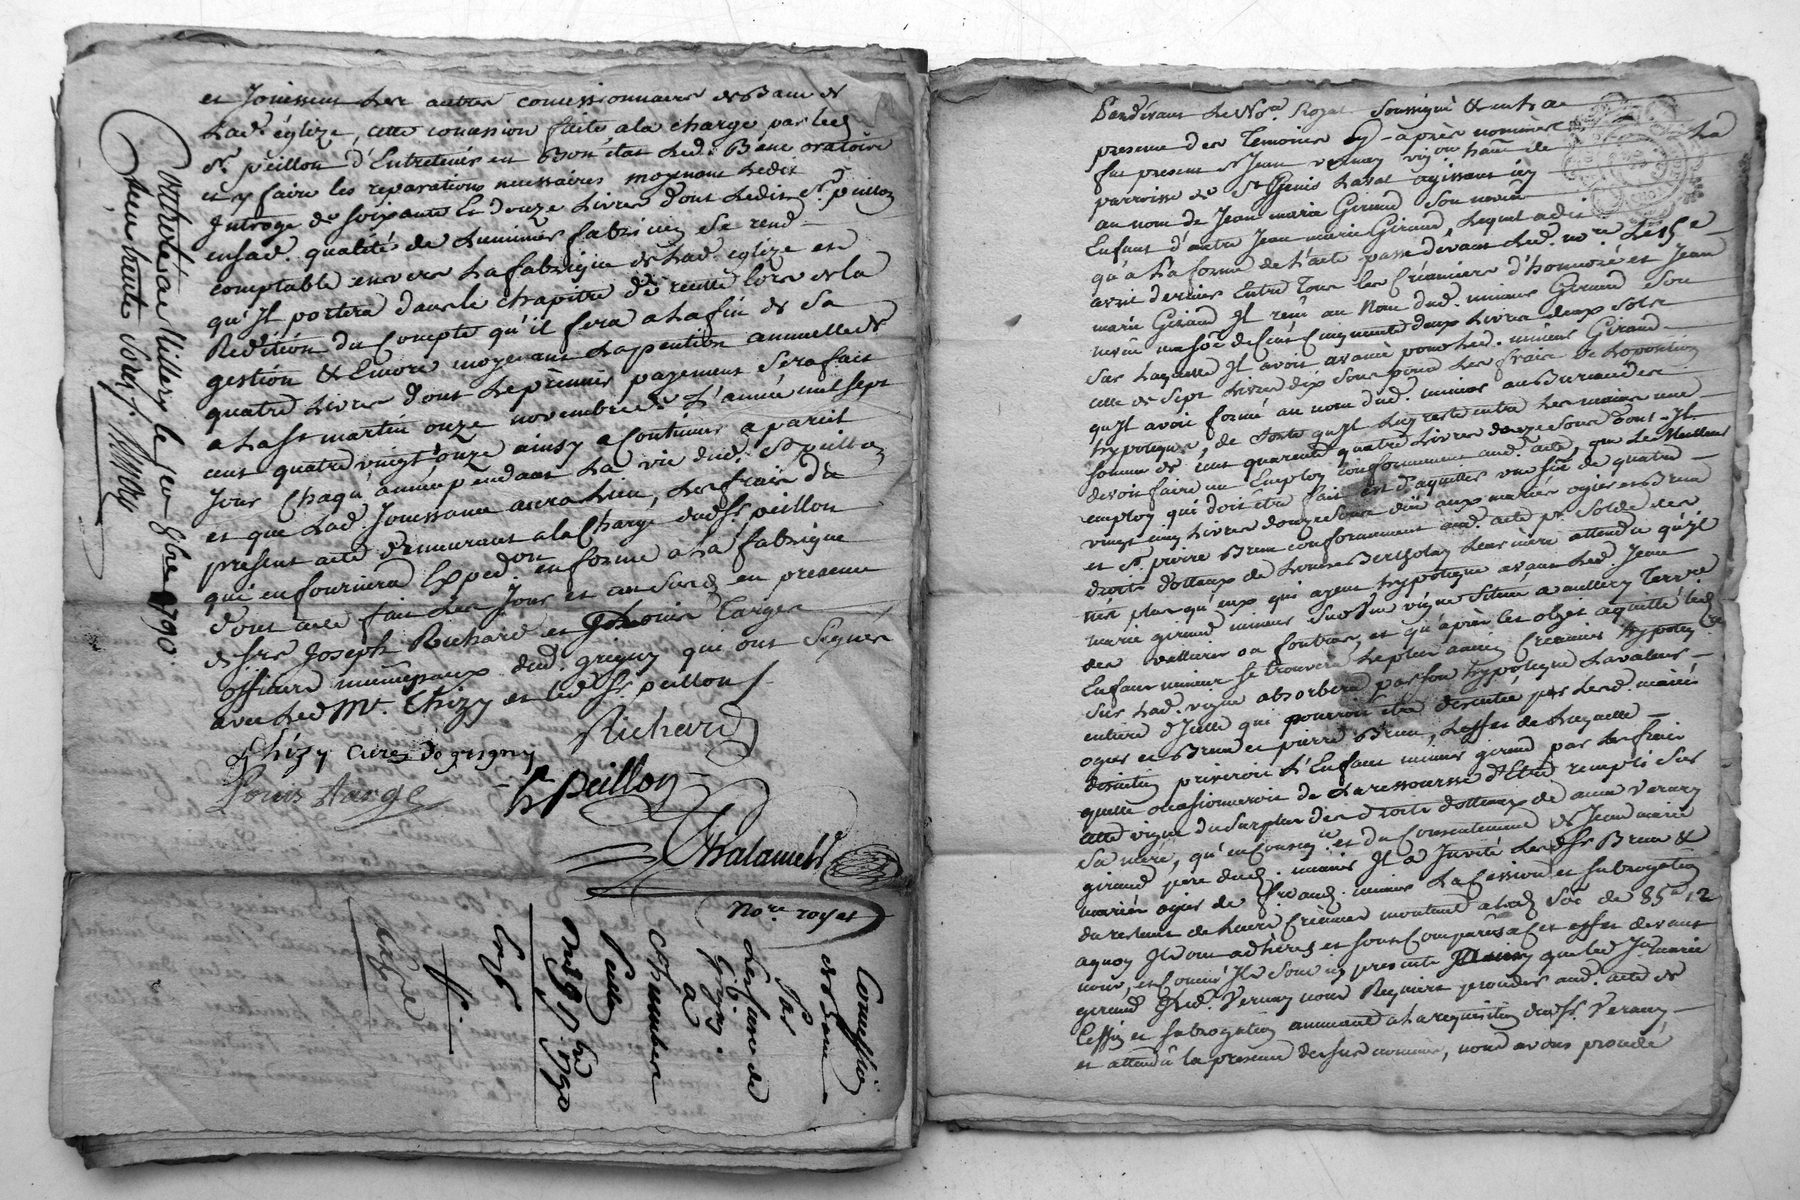 et Jouissent les autres concessionnaires de Banc de
lad. églize, cette concession faite a la charge par led.
Sr. peillon d'Entretenir en bon état led. Banc oratoire
et y faire les reparations necessaires moyenant ledit
Introge de soixante Et douze livres dont ledit Sr. peillon
en sad. qualité de Luminier fabricien se rend
comptable envers la fabrique de lad. eglize et
qu'Il portera dans le chapitre de recette lors de la
Reddition du Compte qu'il fera a la fin de sa
gestion & Encore moyenant la pention annuelle de
quatre livres dont le premier payement sera fait
a la st martin onze novembre de L'année mil sept
cent quatre vingt onze ainsy a Continuer a pareil
Jour chaqu'année pendant la vie dud. Sr peillon
et que lad. Jouissance aura lieu, les frais du
present acte demeurant a la Charge dud. Sr. peillon
qui en fournira Expedon en forme a la fabrique
dont acte fait les Jour et an susd. en presence
de Srs Joseph Richard et Louis Targe
officiers municipaux dud. grigny qui ont signé
avec led. Mr. Thizy et led. Sr. peillon
Richard
Thizy curé de grigny
Louis Targe
h peillon
Chalamel
Nore. royal
Controlé a Millery le 9bre 1790.
Reçu trente sols.
Concession
de banc
Par
La fabrique de
Grigny
a
Chambre
Peillon
Du 9bre 1790
Expé
Pardevant le Nore. Royal soussigné & en la
presence des Temoins cy-après nommés
fut present Sr Jean vernay vigneron hant. de la
parroisse de St Genis Laval agissant icy
au nom de Jean marie Giraud son neveu
Enfant d'autre Jean marie Giraud, lequel a dit
qu'a la forme de l'acte passé devant led. nore. le 15e
avril dernier Entre Tous les Créanciers d'honnoré et Jean
marie Giraud Il revient au Nom dud. mineur Giraud son
neveu une some de Cent Cinquante deux livres deux sols
sur laquelle Il avoit avancé pour led. mineur Giraud
celle de sept livres dix sous pour les frais de l'oposition
qu'Il avoit formé au nom dud. mineur au Bureau des
hypoteques, de sorte qu'Il luy reste entre les mains une
somme de cent quarente quatre livres douze sous dont Il
devoit faire un Employ conformement aud. acte, que le Meilleur
employ qui doit être fait est d'aquitter une some de quatre
vingt cinq livres douze sous due aux mariés ogier et Brun
et Sr. pierre Brun conformement aud. acte pr. solde des
droits dottaux de Louise Bertholay leur mere attendu qu'Il
n'est plus qu'eux qui ayent hypoteque avant led. Jean
marie giraud mineur sur une vigne située a millery Terrre.
des vallieres ou fontrat, et qu'après les objet aquitté led.
Enfant mineur se trouvera le plus ancien Creancier hypotequé
sur lad. vigne absorbera par son hypoteque la valeur
entiere d'Icelle qui pourroit etre discutée par lesd. mariés
ogier et Brun et pierre Brun, l'effet de laquelle
discution priveroit l'Enfant mineur giraud par les frais
quelle occasionneroit de la ressource d'Etre remply sur
cette vigne du surplus des droits dottaux de anne Vernay
sa mere, qu'en consequence et du Consentement de Jean marie
giraud pere dud. mineur Il a Invité lesd. Srs Brun &
mariés ogier de Cession et subrogation
du restant de leurs Creances montant a lad. some de 85# 12
a quoy Ils ont adhérés et sont comparus a cet effet devant
nous, et comme Ils sont icy presents que led. Jn. marie
giraud & led. Vernay nous Requierent proceder aud. acte de
Cession et subrogation a la requisition dud. Sr. Vernay
et attendu la presence des sus nommés, nous avons procedé